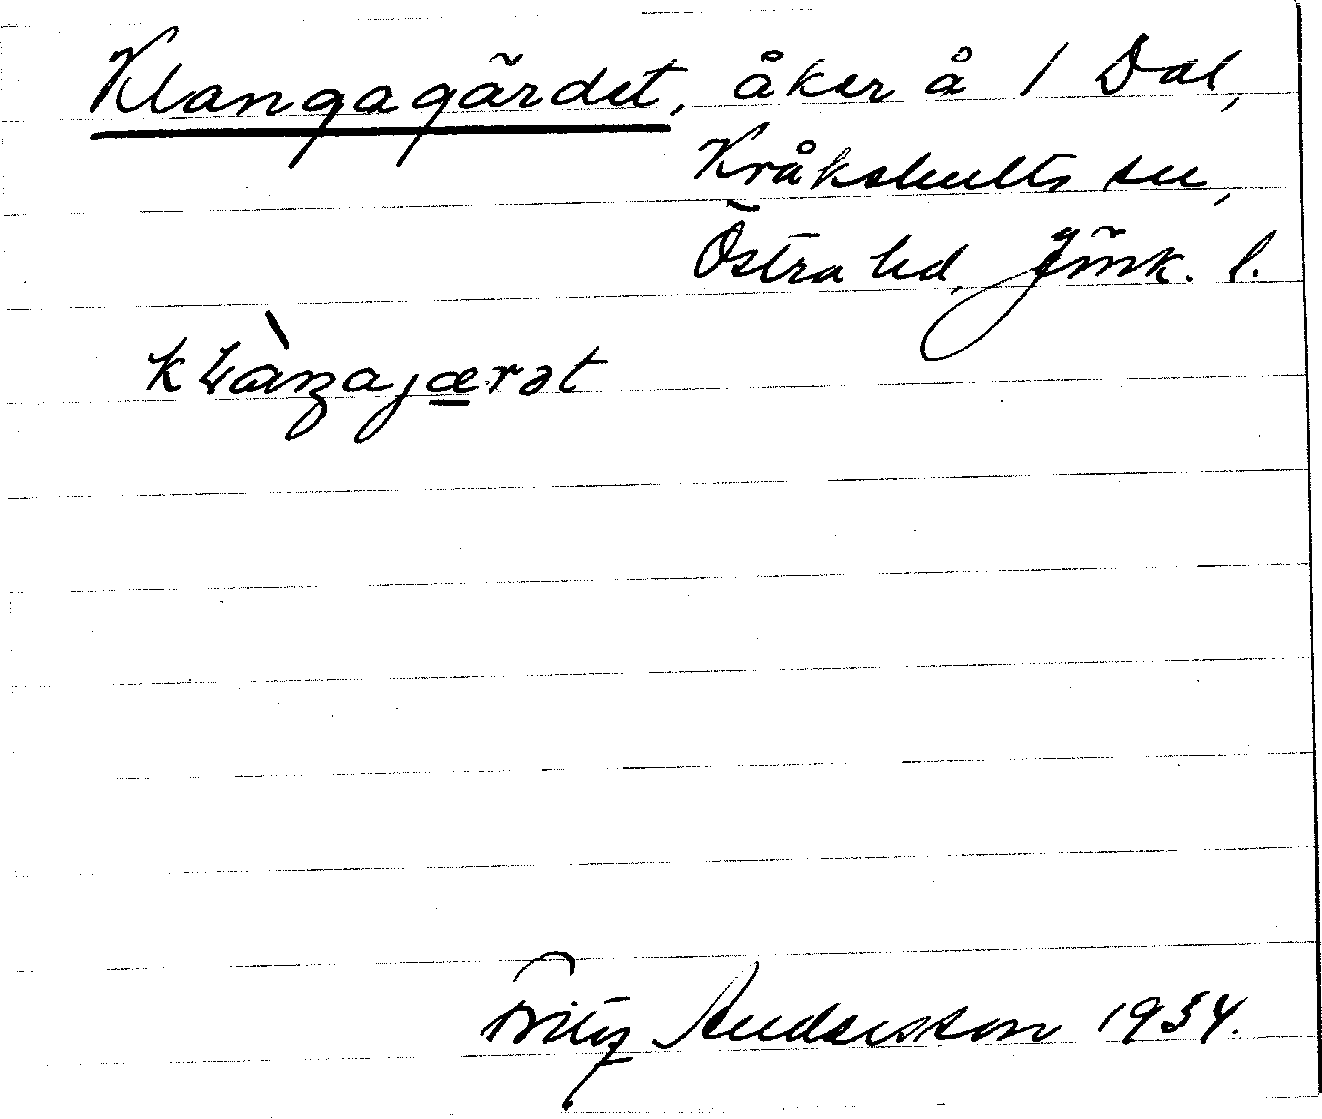 Klangagärdet, åker å 1 Dal,
Kråkshults sn,
Östra hd, Jönk. l.
Fritz Andersson 1934.